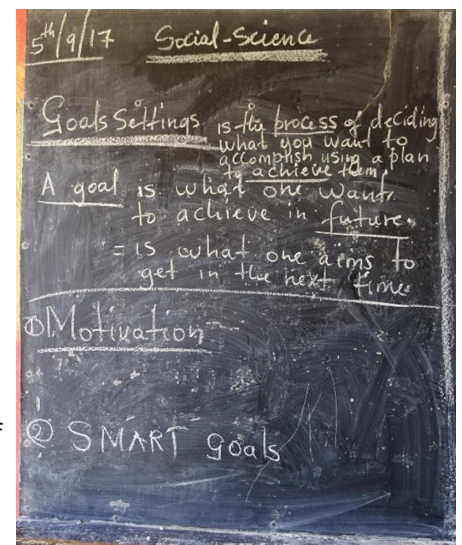 5th/9/17 Social-Science
Goals Settings is the process of deciding
what you want to
accomplish using a plan
to achieve them.
A goal is what one wants
to achieve in future.
= is what one aims to
get in the next time.
① Motivation
② SMART Goals
f